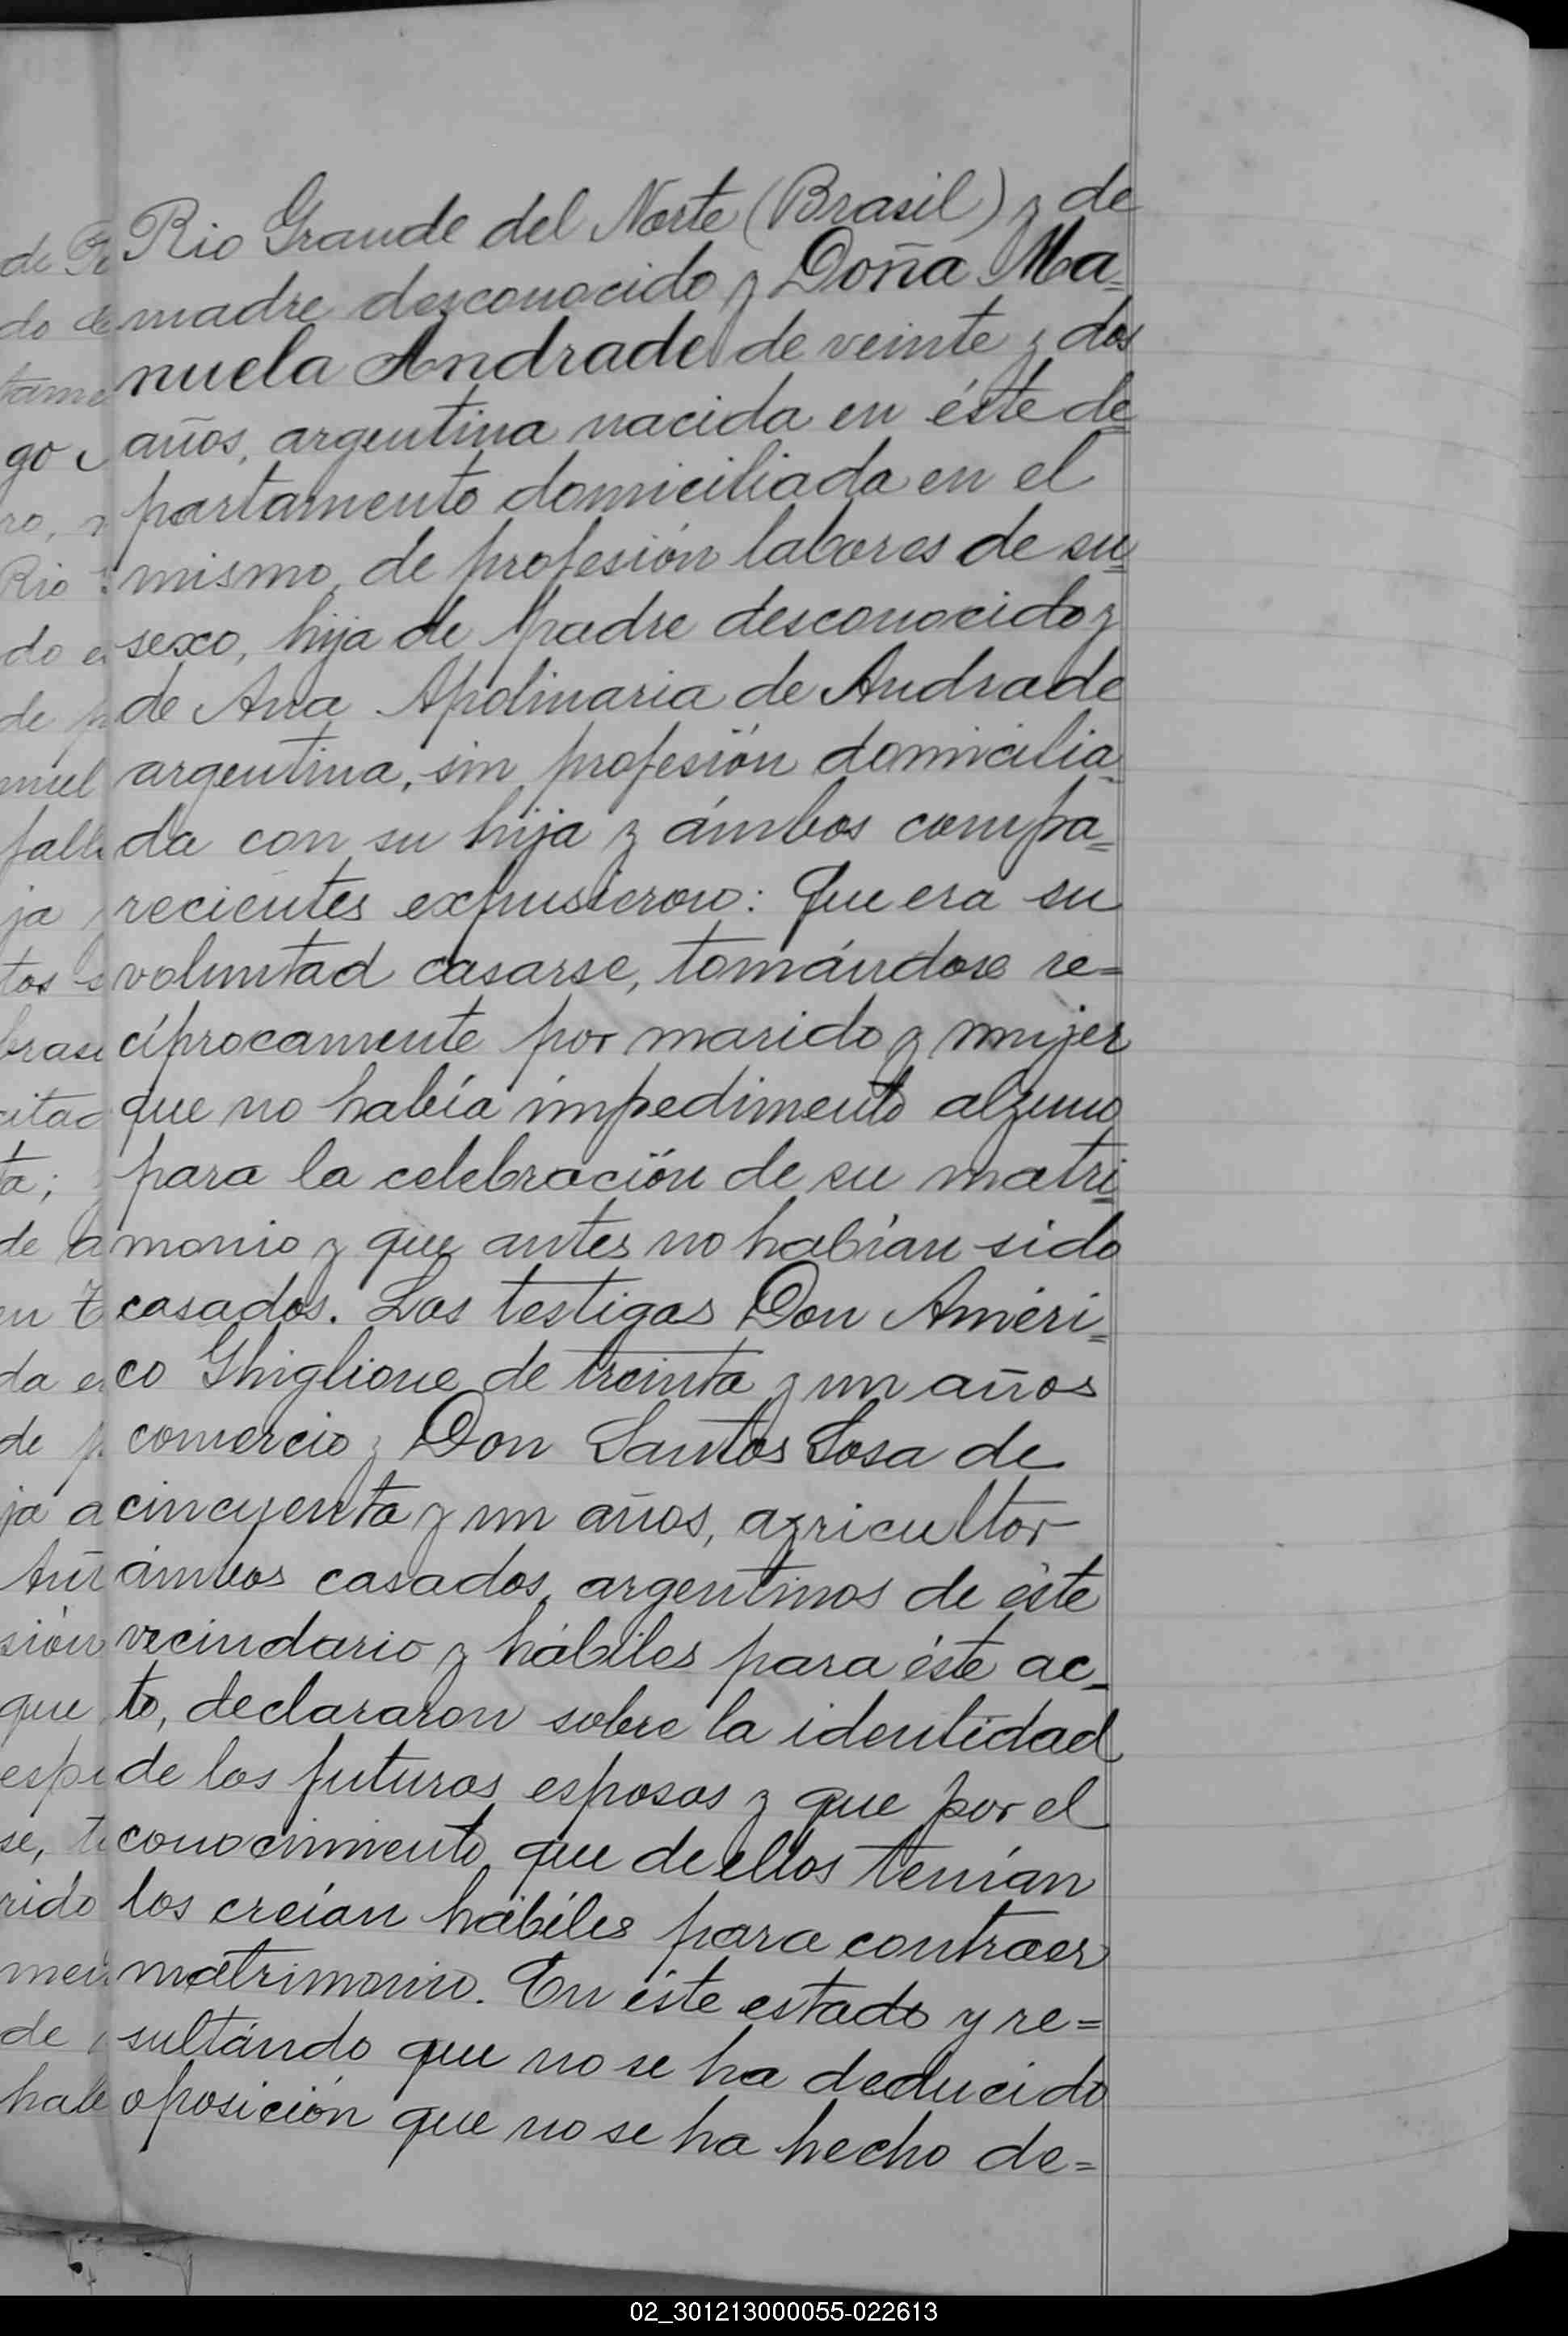 Rio Grande del Norte (Brasil) y de
madre desconocido y Doña Ma=
nuela Andrade de veinte y dos
años, argentina nacida en éste de=
partamento domiciliada en el
mismo, de profesión labores de su=
sexo, hija de padre desconocido y
de Ana Apolinaria de Andrade
argentina, sin profesión domicilia=
da con su hija y ámbos compa=
recientes expusieron: Que era su
voluntad casarse, tomándose re=
cíprocamente por marido y mujer
que no había impedimento alguno
para la celebración de su matri=
monio y que antes no habían sido
casados. Los testigos Don Améri=
co Ghiglione de treinta y un años
comercio y Don Santos Sosa de
cincuenta y un años, agricultor
ámbos casados, argentinos de éste
vecindario y hábiles para éste ac=
to, declararon sobre la identidad
de los futuros esposos y que por el
conocimiento que de ellos tenían
los creían hábiles para contraer
matrimonio. En éste estado y re=
sultándo que no se ha deducido
oposición que no se ha hecho de=
02_301213000055-022613